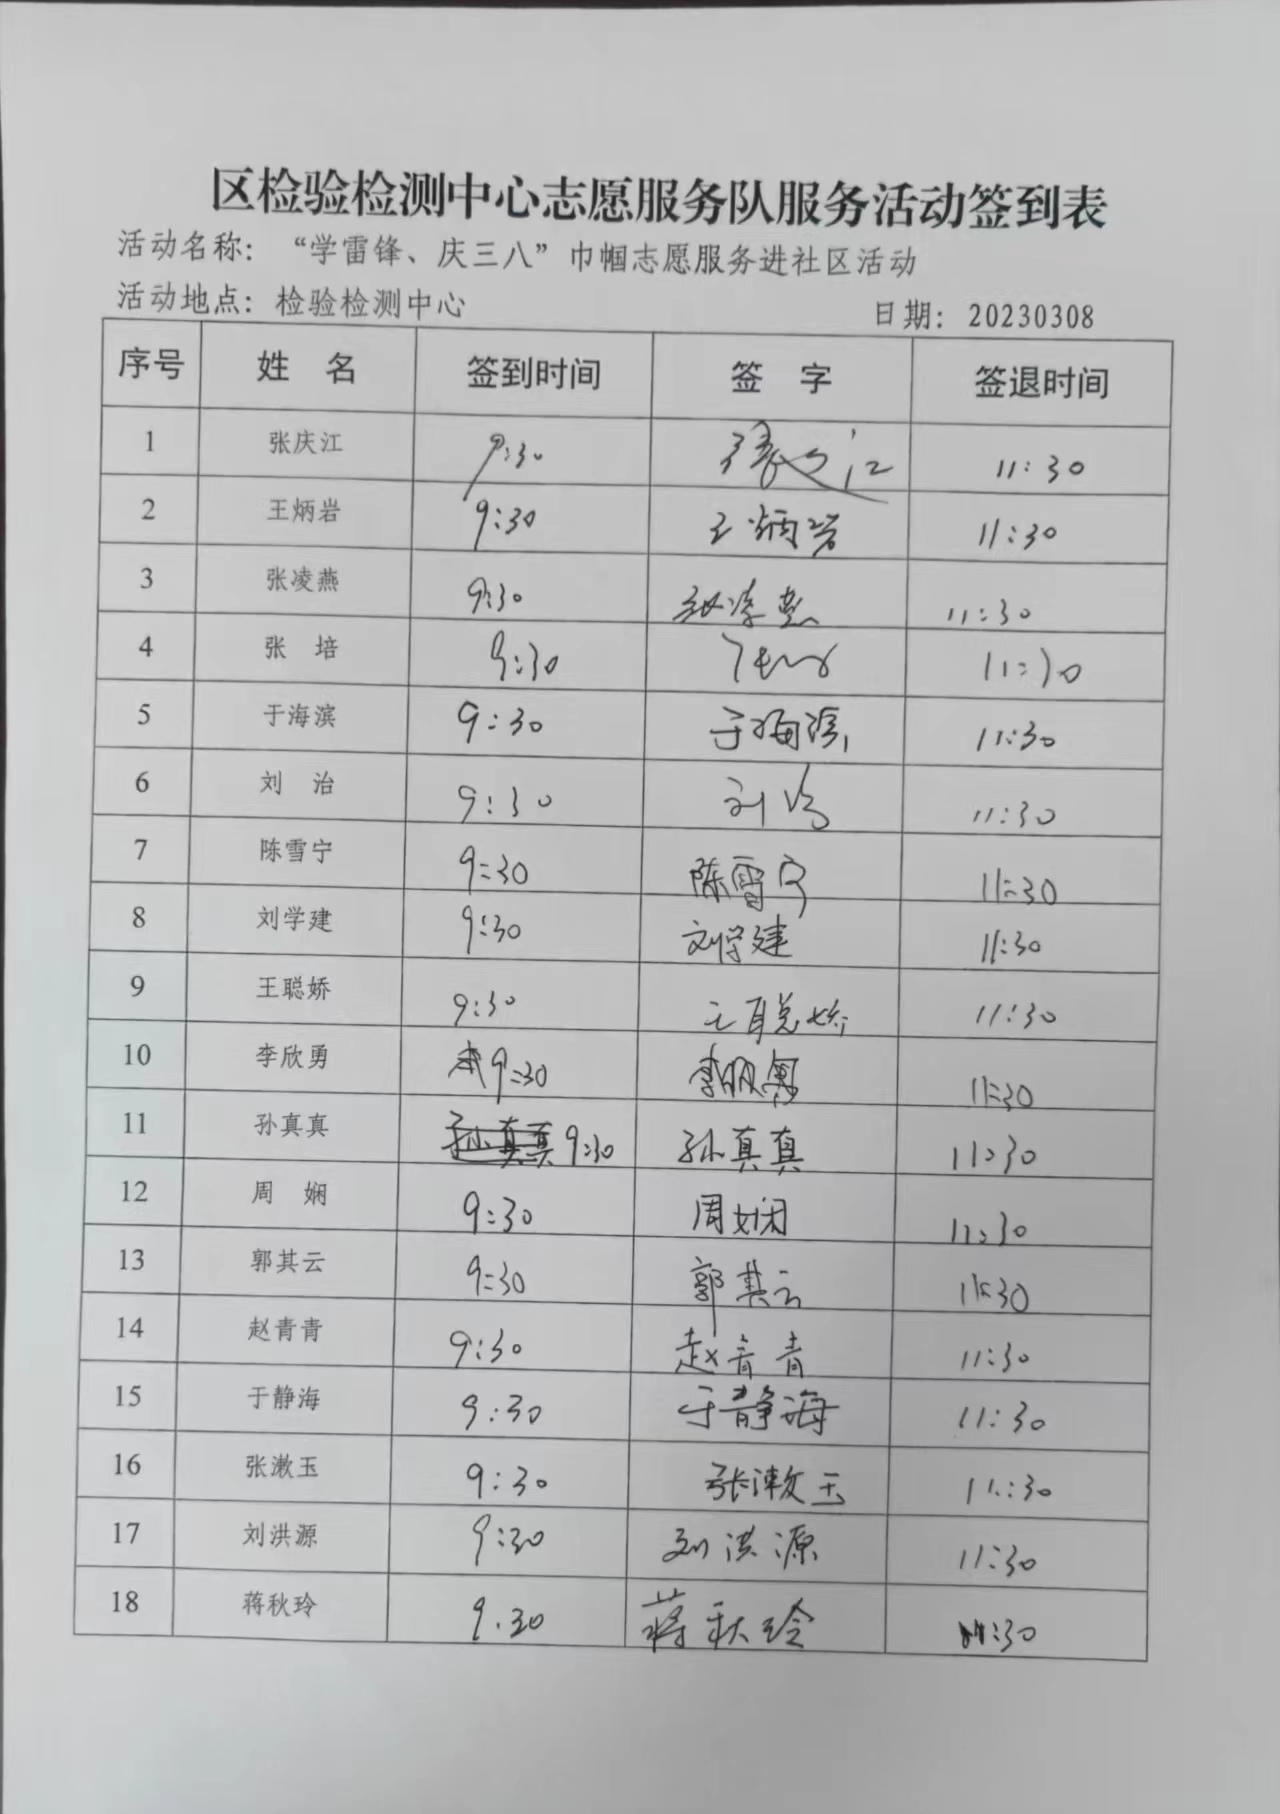 区检验检测中心志愿服务队服务活动签到表
活动名称：“学雷锋、庆三八”巾帼志愿服务进社区活动
活动地点：检验检测中心 日期：20230308
序号 姓 名 签到时间 签 字 签退时间
1 张庆江 9:30 11:30
2 王炳岩 9:30 王炳岩 11:30
3 张凌燕 9:30 张凌燕 11:30
4 张 培 9:30 11:30
5 于海滨 9:30 于海滨 11:30
6 刘 治 9:30 刘治 11:30
7 陈雪宁 9:30 陈雪宁 11:30
8 刘学建 9:30 刘学建 11:30
9 王聪娇 9:30 王聪娇 11:30
10 李欣勇 9:30 11:30
11 孙真真 孙真真 9:30 孙真真 11:30
12 周 娴 9:30 周娴 11:30
13 郭其云 9:30 郭其云 11:30
14 赵青青 9:30 赵青青 11:30
15 于静海 9:30 于静海 11:30
16 张漱玉 9:30 张漱玉 11:30
17 刘洪源 9:30 刘洪源 11:30
18 蒋秋玲 9.30 蒋秋玲 11:30